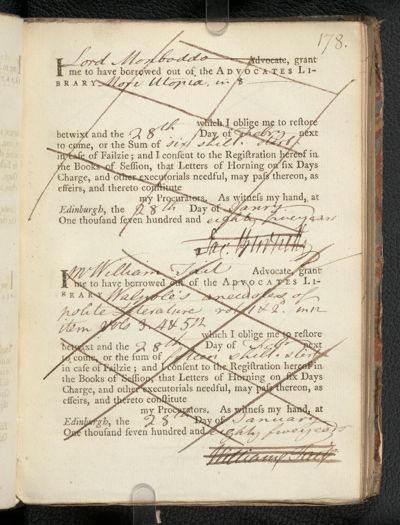 178.
I Lord Monboddo Advocate, grant
me to have borrowed out of the ADVOCATES LI-
BRARY More Utopia. in 8
which I oblige me to restore
betwixt and the 28th Day of next
to come, or the Sum of six shill: sterl
in case of Failzie; and I consent to the Registration hereof in
the Books of Session, that Letters of Horning on six Days
Charge, and other executorials needful, may pass thereon, as
effeirs, and thereto constitute
my Procurators. As witness my hand, at
Edinburgh, the 28th Day of
One thousand seven hundred and eighty five years
I Mr William Tait Advocate, grant
me to have borrowed out of the ADVOCATES LI-
BRARY Walpole's anecdotes of
polite literature vol. 1 & 2.
item vols 3. 4 & 5th
which I oblige me to restore
betwixt and the 28 Day of next
to come, or the sum of shill: sterl
in case of Failzie; and I consent to the Registration hereof in
the Books of Session, that Letters of Horning on six Days
Charge, and other executorials needful, may pass thereon, as
effeirs, and thereto constitute
my Procurators. As witness my hand, at
Edinburgh, the 28th Day of January
One thousand seven hundred and eighty five years
William Tait